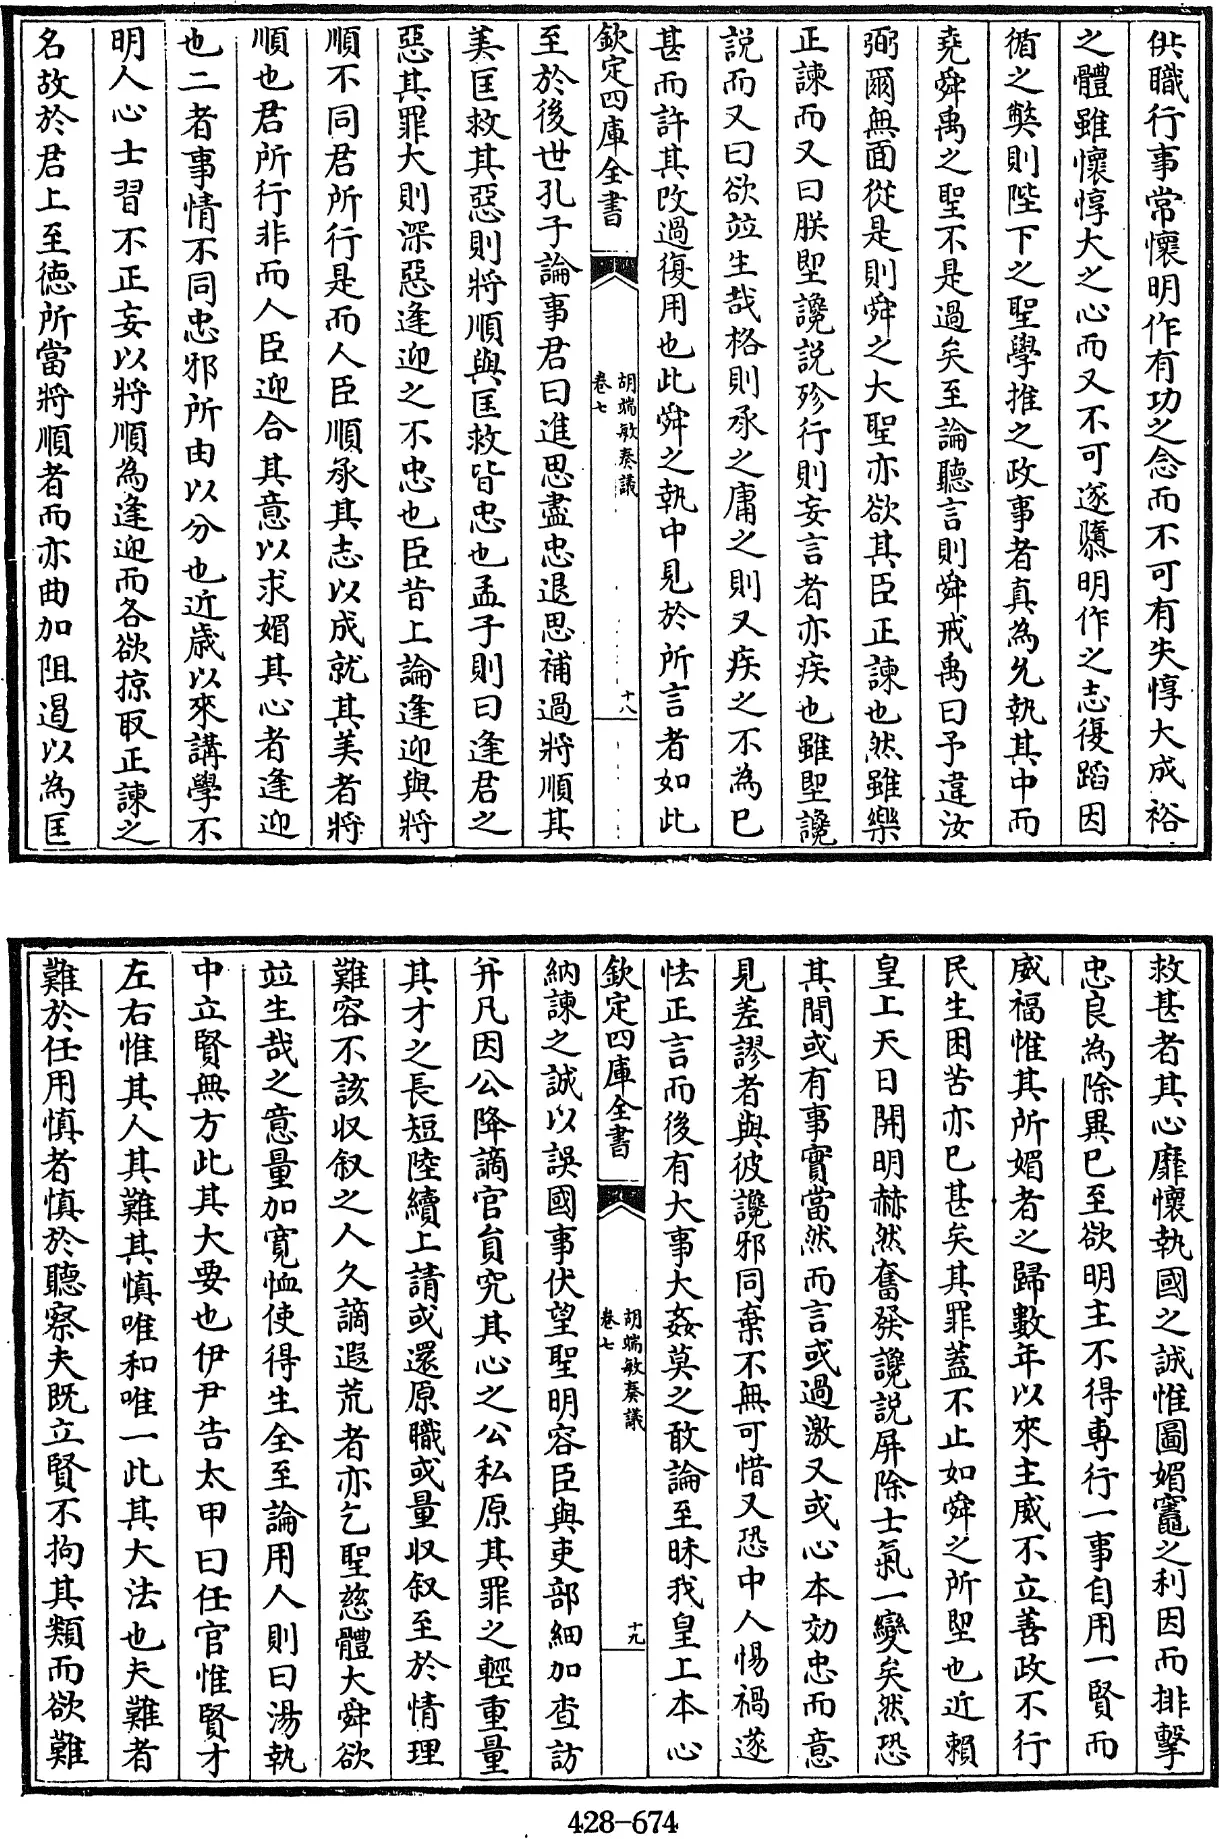 供職行事常懷明作有功之念而不可有失惇大成裕
之體雖懷惇大之心而又不可遂隳明作之志復蹈因
循之弊則陛下之聖學推之政事者真為允執其中而
堯舜禹之聖不是過矣至論聽言則舜戒禹曰予違汝
弼爾無面從是則舜之大聖亦欲其臣正諫也然雖樂
正諫而又曰朕堲讒説殄行則妄言者亦疾也雖堲讒
説而又曰欲竝生哉格則承之庸之則又疾之不為已
甚而許其改過復用也此舜之執中見於所言者如此
欽定四庫全書
胡端敏奏議
卷七
十八
至於後世孔子論事君曰進思盡忠退思補過將順其
美匡救其惡則將順與匡救皆忠也孟子則曰逢君之
惡其罪大則深惡逢迎之不忠也臣昔上論逢迎與將
順不同君所行是而人臣順承其志以成就其美者將
順也君所行非而人臣迎合其意以求媚其心者逢迎
也二者事情不同忠邪所由以分也近歳以來講學不
明人心士習不正妄以將順為逢迎而各欲掠取正諫之
名故於君上至徳所當將順者而亦曲加阻遏以為匡
救甚者其心靡懷執國之誠惟圖媚竈之利因而排擊
忠良為除異已至欲明主不得專行一事自用一賢而
威福惟其所媚者之歸數年以來主威不立善政不行
民生困苦亦已甚矣其罪葢不止如舜之所堲也近賴
皇上天日開明赫然奮發讒説屏除士氣一變矣然恐
其間或有事實當然而言或過激又或心本効忠而意
見差謬者與彼讒邪同棄不無可惜又恐中人惕禍遂
怯正言而後有大事大姦莫之敢論至昧我皇上本心
欽定四庫全書
胡端敏奏議
卷七
十九
納諫之誠以誤國事伏望聖明容臣與吏部細加查訪
并凡因公降謫官員究其心之公私原其罪之輕重量
其才之長短陸續上請或還原職或量収叙至於情理
難容不該収叙之人久謫遐荒者亦乞聖慈體大舜欲
竝生哉之意量加寛恤使得生全至論用人則曰湯執
中立賢無方此其大要也伊尹告太甲曰任官惟賢才
左右惟其人其難其慎唯和唯一此其大法也夫難者
難於任用慎者慎於聽察夫既立賢不拘其類而欲難
428-674